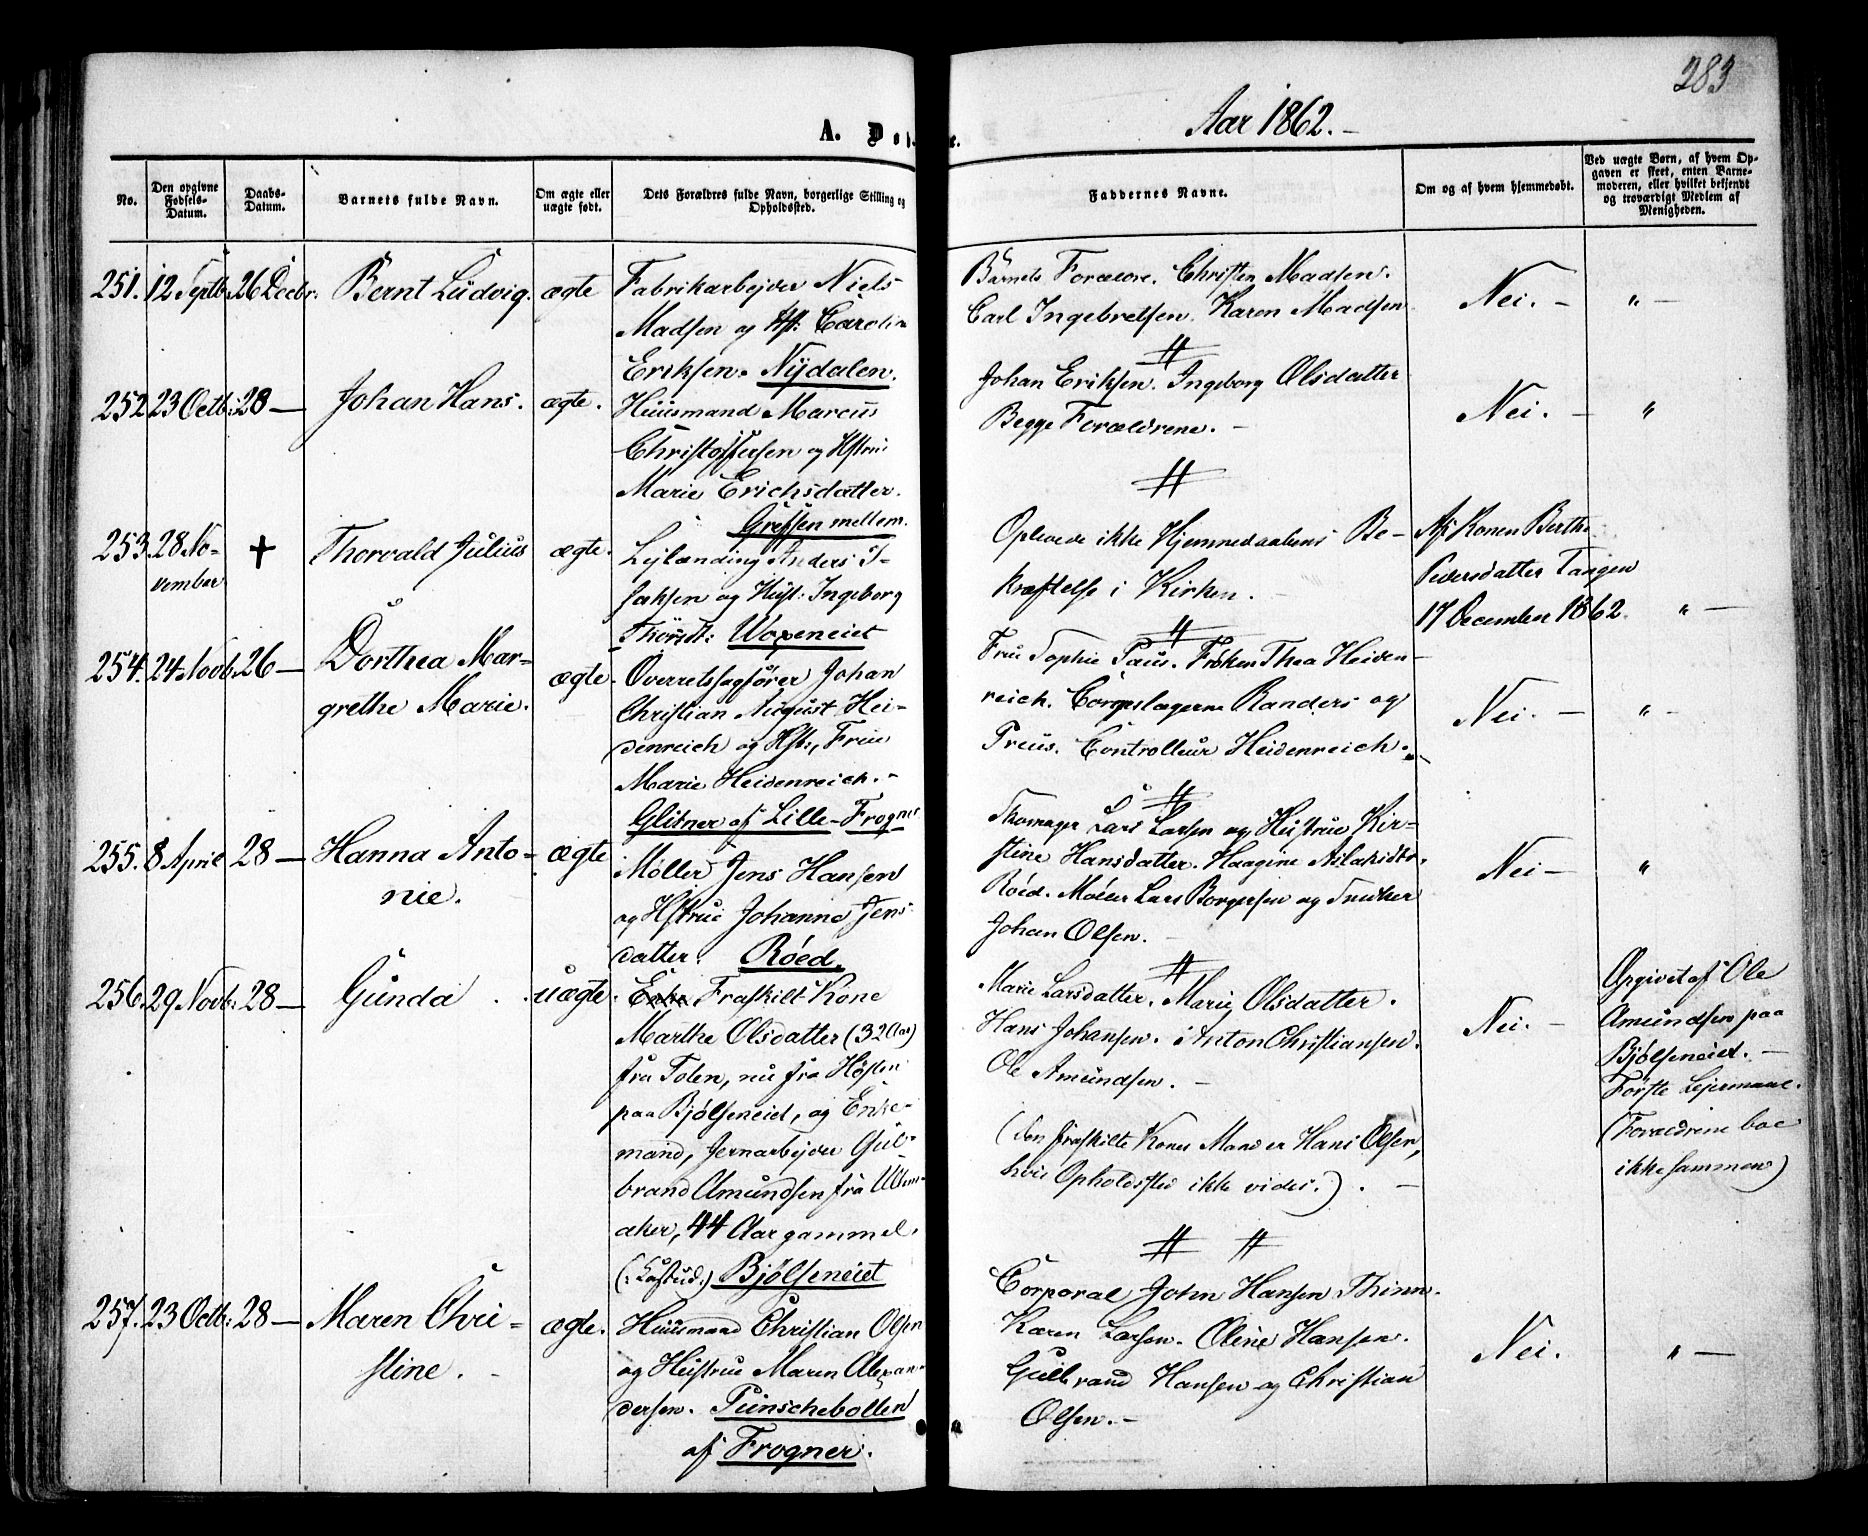 283
Aar 1862.-
A. Døbte.
No.
Den opgivne Fødsels-Datum.
Daabs-Datum.
Barnets fulde Navn.
Om ægte eller uægte født.
Dets Forældres fulde Navn, borgerlige Stilling og Opholdssted.
Faddernes Navne.
Om og af hvem hjemmedøbt.
Ved uægte Børn, af hvem Opgaven er skeet, enten Barnemoderen, eller hvilket bekjendt og troværdigt Medlem af Menigheden.
251. 12 Septb: 26 Decbr: Bernt Ludvig. ægte
Fabrikarbejder Niels
Madsen og Hst: Carolin
Eriksen. Nydalen.
Barnets Forældre. Christen Madsen.
Carl Ingebretsen. Karen Madsen.
Nei. - " -
252. 23 Octb: 28 - Johan Hans. ægte.
Huusmand Marcus
Christoffersen og Hstrue
Marie Erichsdatter.
Grefsen mellem.
Johan Eriksen. Ingeborg Olsdatter
Begge Forældrene. -
Nei. - "
253. 28 No-
vember
† Thorvald Julius ægte.
Lejlænding Anders I-
saksen og Hust: Ingeborg
Thorsdt: Woxeneiet
Oplevede ikke Hjemmedaabens Be-
kræftelse i Kirken. -
Af Konen Berthe
Pedersdatter Tangen
17 December 1862. " -
254. 24 Novb. 26 - Dorthea Mar-
grethe Marie. ægte.
Overretssagfører Johan
Christian August Hei-
denreich og Hst:, Frue
Marie Heidenreich. -
Glitner af Lille-Frogner
Frue Sophie Paus. Frøken Thea Heiden-
reich. Corpslægerne Randers og
Preus. Controlleur Heidenreich.
Nei. - " -
255. 8 April 28 - Hanna Anto-
nie. ægte
Møller Jens Hansen
og Hstrue Johanne Jens-
datter. Røed.
Lars Larsen og Hustrue Kir-
stine Hansdatter. Haagine Aslaksdtr.
Røed. Møller Lars Borgersen og Snekker
Johan Olsen. -
Nei - "
256. 29 Novb: 28 - Gunda. uægte.
Enke Fraskilt Kone
Marthe Olsdatter (32 Aar)
fra Toten, nu fra Høsten
paa Bjølseneiet, og Enke-
mand, Jernarbejder Gul-
brand Amundsen fra Ullens-
aker, 44 Aar gammel.
Bjølseneiet
Marie Larsdatter. Marie Olsdatter.
Hans Johansen. Anton Christiansen.
Ole Amundsen. -
(den fraskilte Kones Mand er Hans Olsen,
hvis Opholdssted ikke vides.). -
Nei. -
Opgivet af Ole
Amundsen paa
Bjølseneiet. -
Første Lejermaal.
(Forældrene boe
ikke sammen)
257. 23 Octb: 28 - Maren Chri-
stine. - ægte.
Huusmand Christian Olsen
og Hustrue Maren Alexan-
dersen. Punschebollen
af Frogner.
Corporal John Hansen Thinn.
Karen Larsen. Oline Hansen.
Gulbrand Hansen og Christian
Olsen. -
Nei. " -